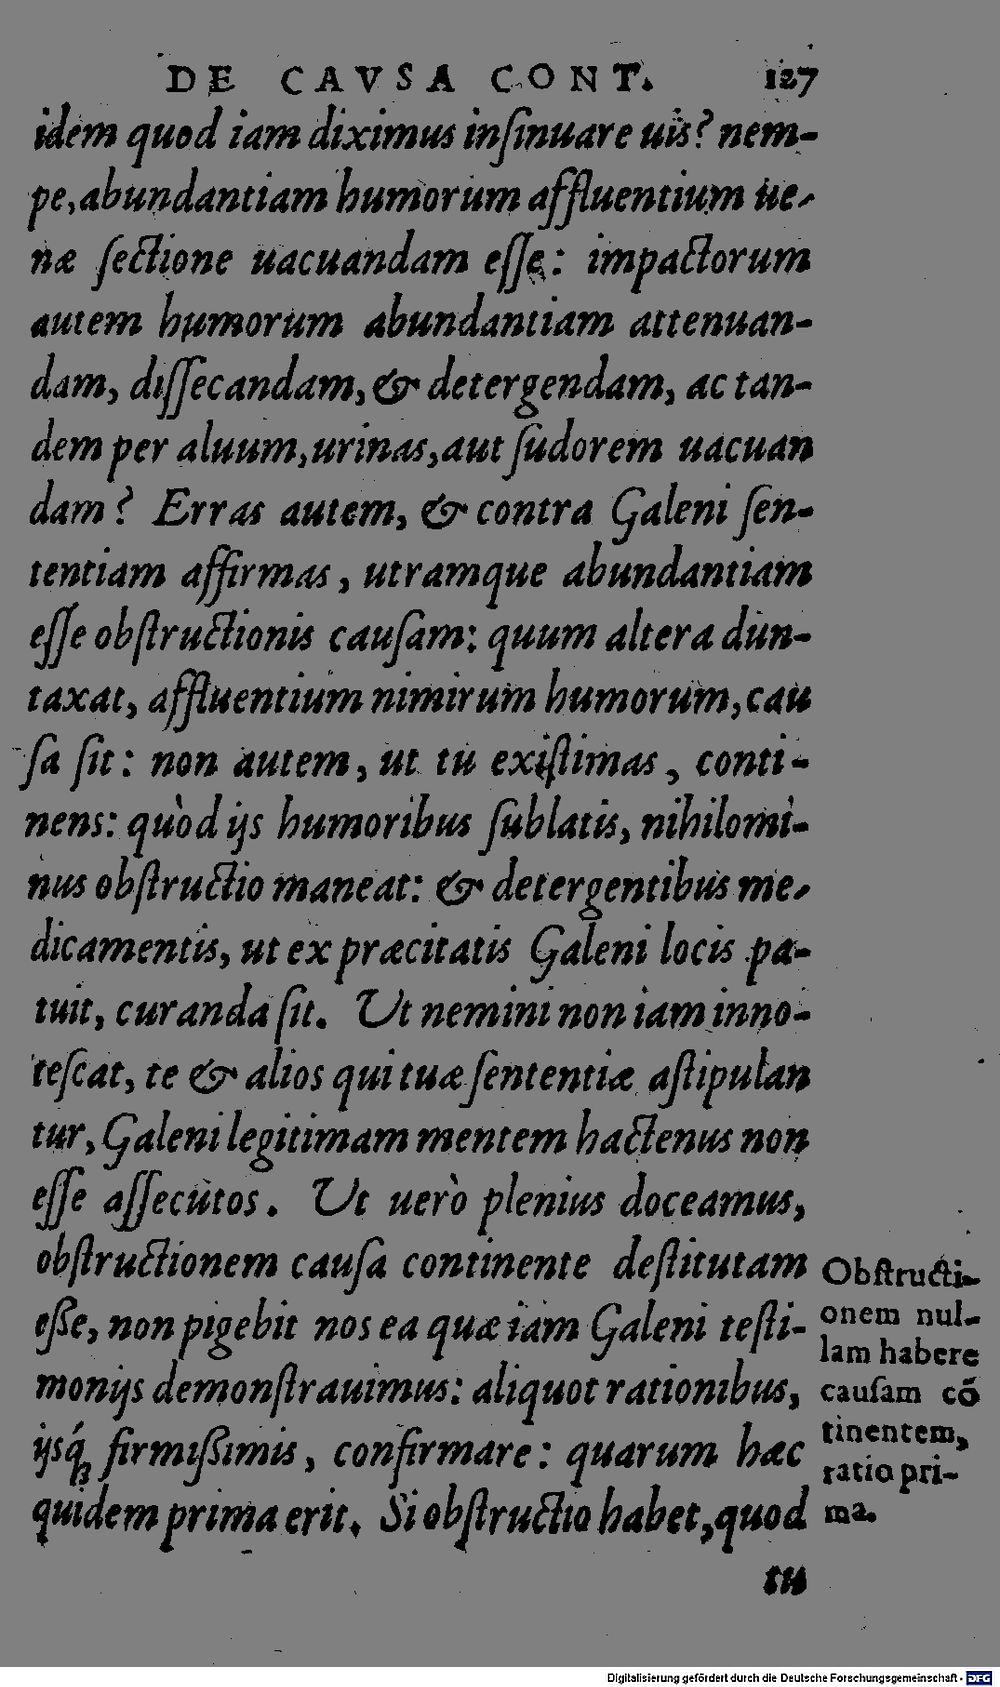 DE CAVSA CONT. 127
idem quod iam diximus inſinuare uis? nem-
pe, abundantiam humorum affluentium ue-
næ ſectione uacuandam eſſe: impactorum
autem humorum abundantiam attenuan-
dam, diſſecandam, & detergendam, ac tan-
dem per aluum, urinas, aut ſudorem uacuan
dam? Erras autem, & contra Galeni ſen-
tentiam affirmas, utramque abundantiam
eſſe obſtructionis cauſam: quum altera dun-
taxat, affluentium nimirum humorum, cau
ſa ſit: non autem, ut tu exiſtimas, conti-
nens: quòd ijs humoribus ſublatis, nihilomi-
nus obſtructio maneat: & detergentibus me-
dicamentis, ut ex præcitatis Galeni locis pa-
tuit, curanda ſit. Ut nemini non iam inno-
teſcat, te & alios qui tuæ ſententiæ aſtipulan
tur, Galeni legitimam mentem hactenus non
eſſe aſſecutos. Ut uerò plenius doceamus,
obſtructionem cauſa continente deſtitutam
eſße, non pigebit nos ea quæ iam Galeni teſti-
monijs demonſtrauimus: aliquot rationibus,
ijsq́ꝫ firmißimis, confirmare: quarum hæc
quidem prima erit. Si obſtructio habet, quod
tu
Obſtructi-
onem nul-
lam habere
cauſam cō
tinentem,
ratio pri-
ma.
Digitalisierung gefördert durch die Deutsche Forschungsgemeinschaft - DFG